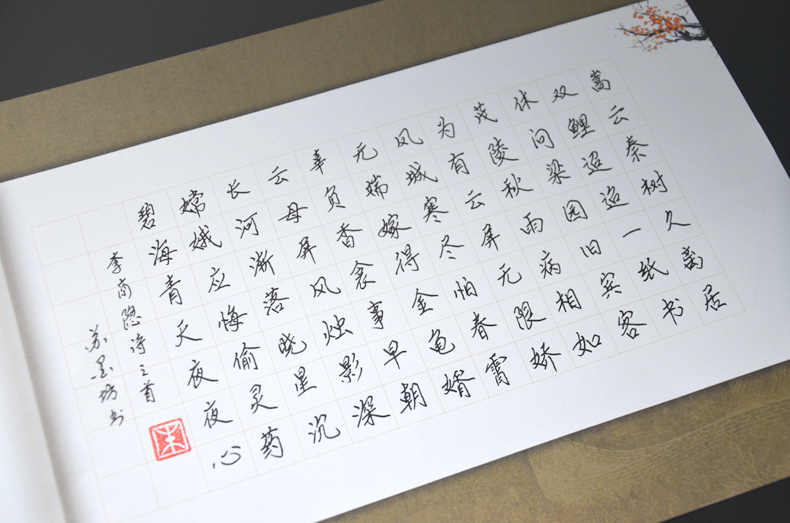 嵩云秦树久离居
双鲤迢迢一纸书
休问梁园旧宾客
茂陵秋雨病相如
为有云屏无限娇
凤城寒尽怕春霄
无端嫁得金龟婿
辜负香衾事早朝
云母屏风烛影深
长河渐落晓星沉
嫦娥应悔偷灵药
碧海青天夜夜心
李商隐诗三首
苏墨坊书